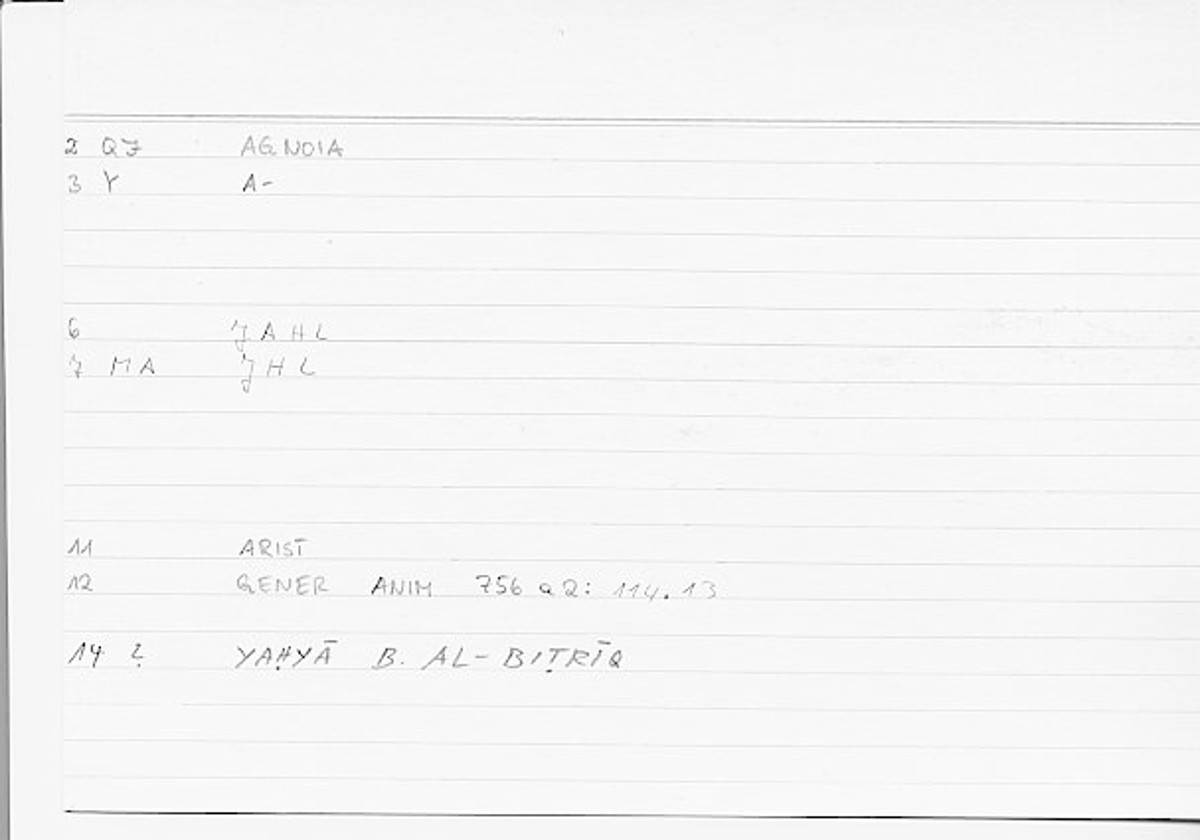 2 QJ AGNOIA
3 Y A-
6 'JAHL
7 MA 'JHL
11 ARIST
12 GENER ANIM 756 a 2: 114.13
14 YAḤYĀ B. AL-BIṬRĪQ